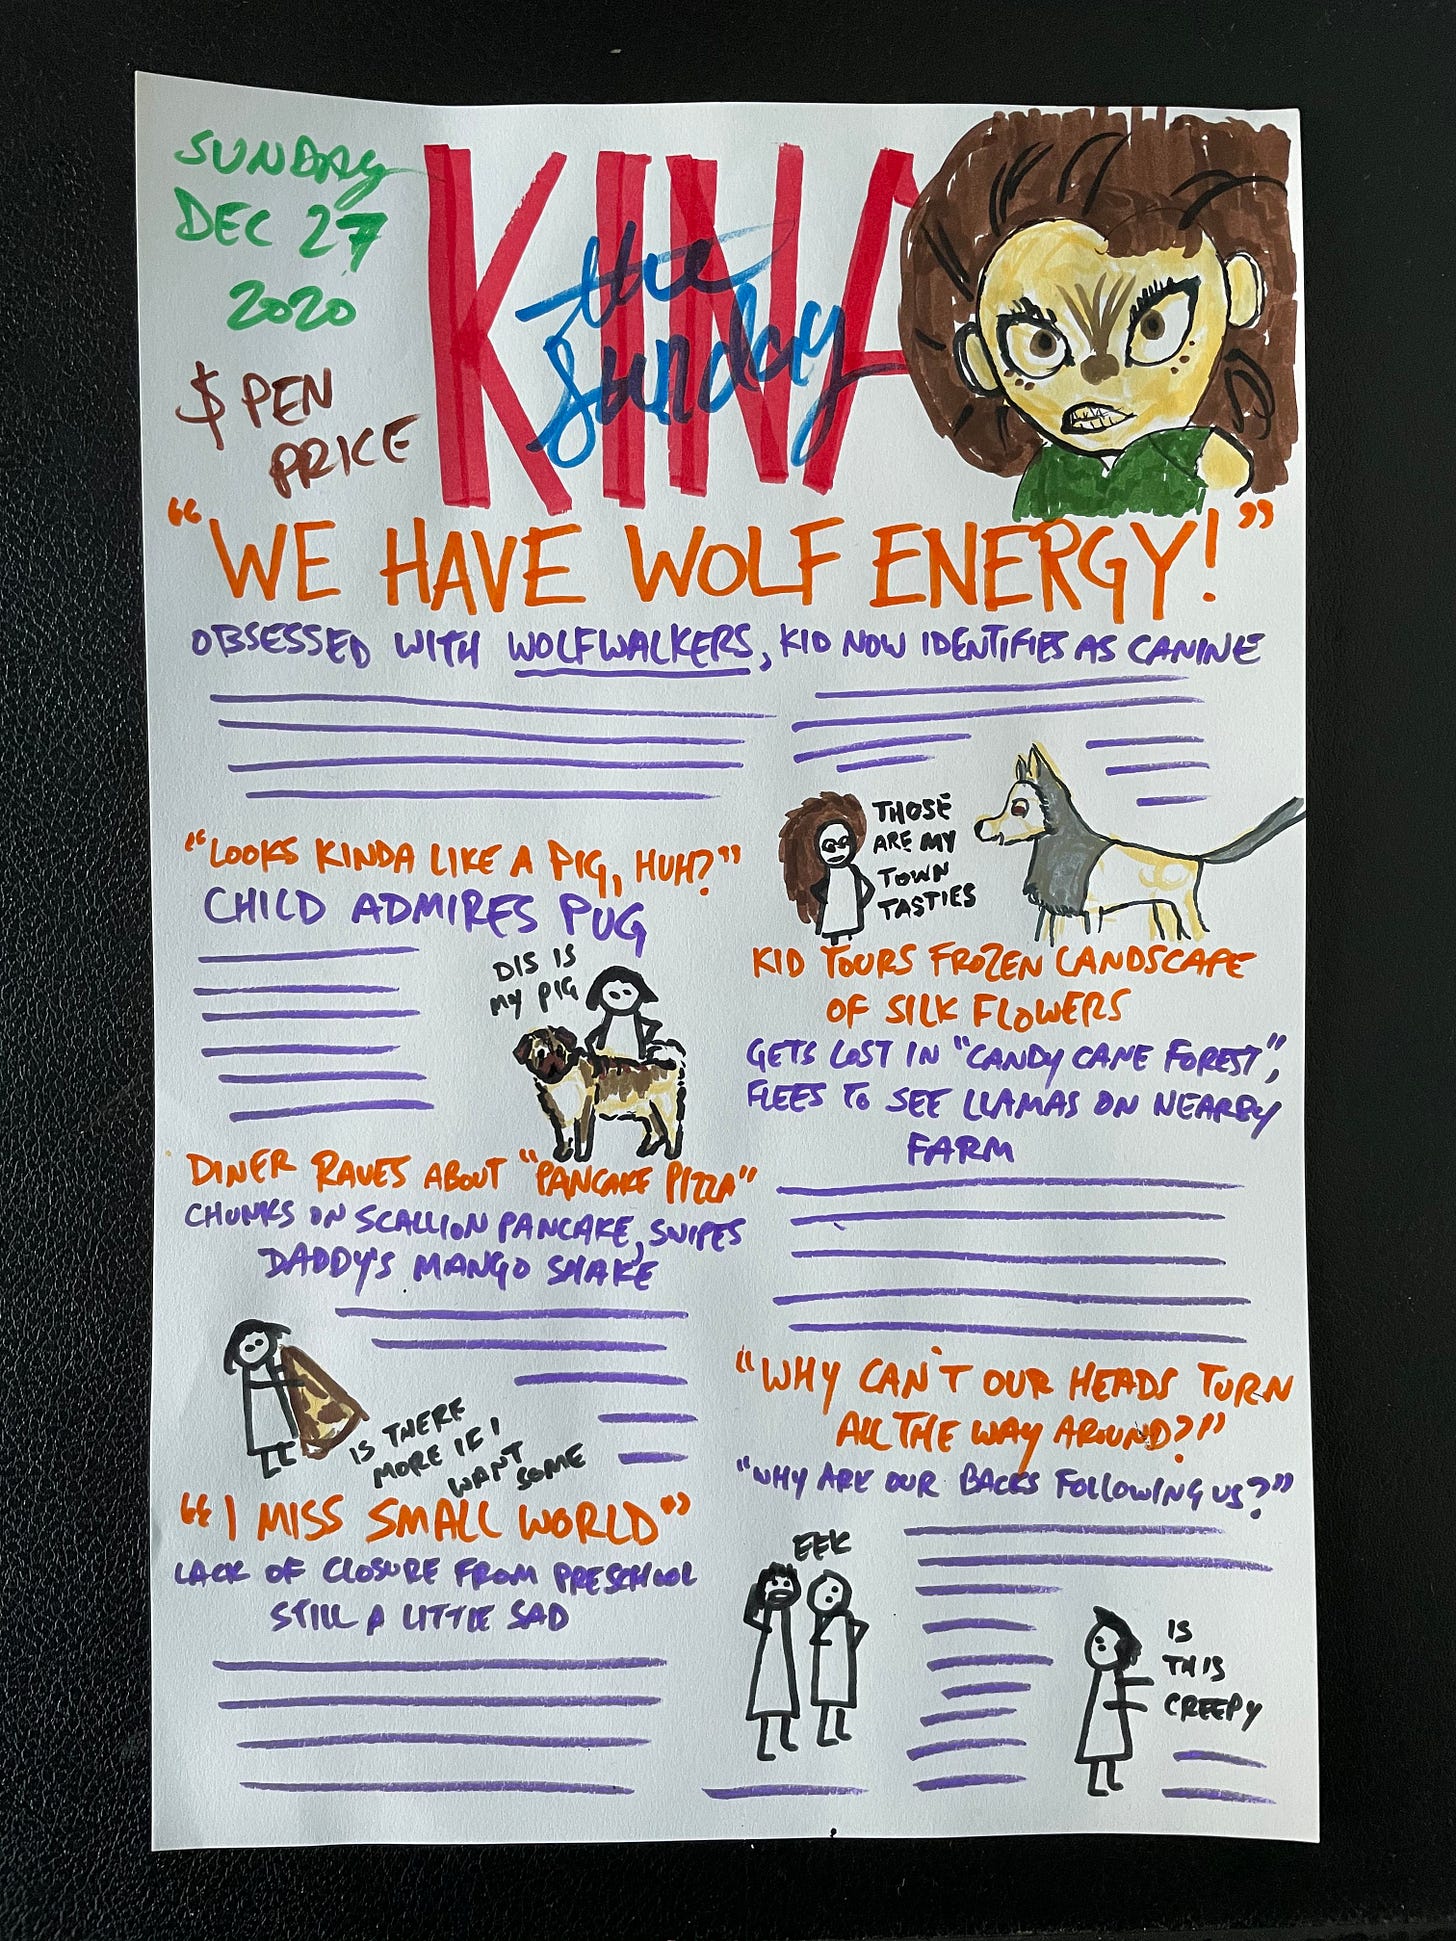 SUNDAY
DEC 27
2020
$ PEN
PRICE
KINA
the
Sunday
"WE HAVE WOLF ENERGY!"
OBSESSED WITH WOLFWALKERS, KID NOW IDENTIFIES AS CANINE
THOSE
ARE MY
TOWN
TASTIES
"LOOKS KINDA LIKE A PIG, HUH?"
CHILD ADMIRES PUG
DIS IS
MY PIG
DINER RAVES ABOUT "PANCAKE PIZZA"
CHUNKS ON SCALLION PANCAKE, SWIPES
DADDY'S MANGO SHAKE
IS THERE
MORE IF I
WANT
SOME
"I MISS SMALL WORLD"
LACK OF CLOSURE FROM PRESCHOOL
STILL A LITTLE SAD
KID TOURS FROZEN LANDSCAPE
OF SILK FLOWERS
GETS LOST IN "CANDY CANE FOREST",
FLEES TO SEE LLAMAS ON NEARBY
FARM
"WHY CAN'T OUR HEADS TURN
ALL THE WAY AROUND?"
"WHY ARE OUR BACKS FOLLOWING US?"
EEK
IS
THIS
CREEPY